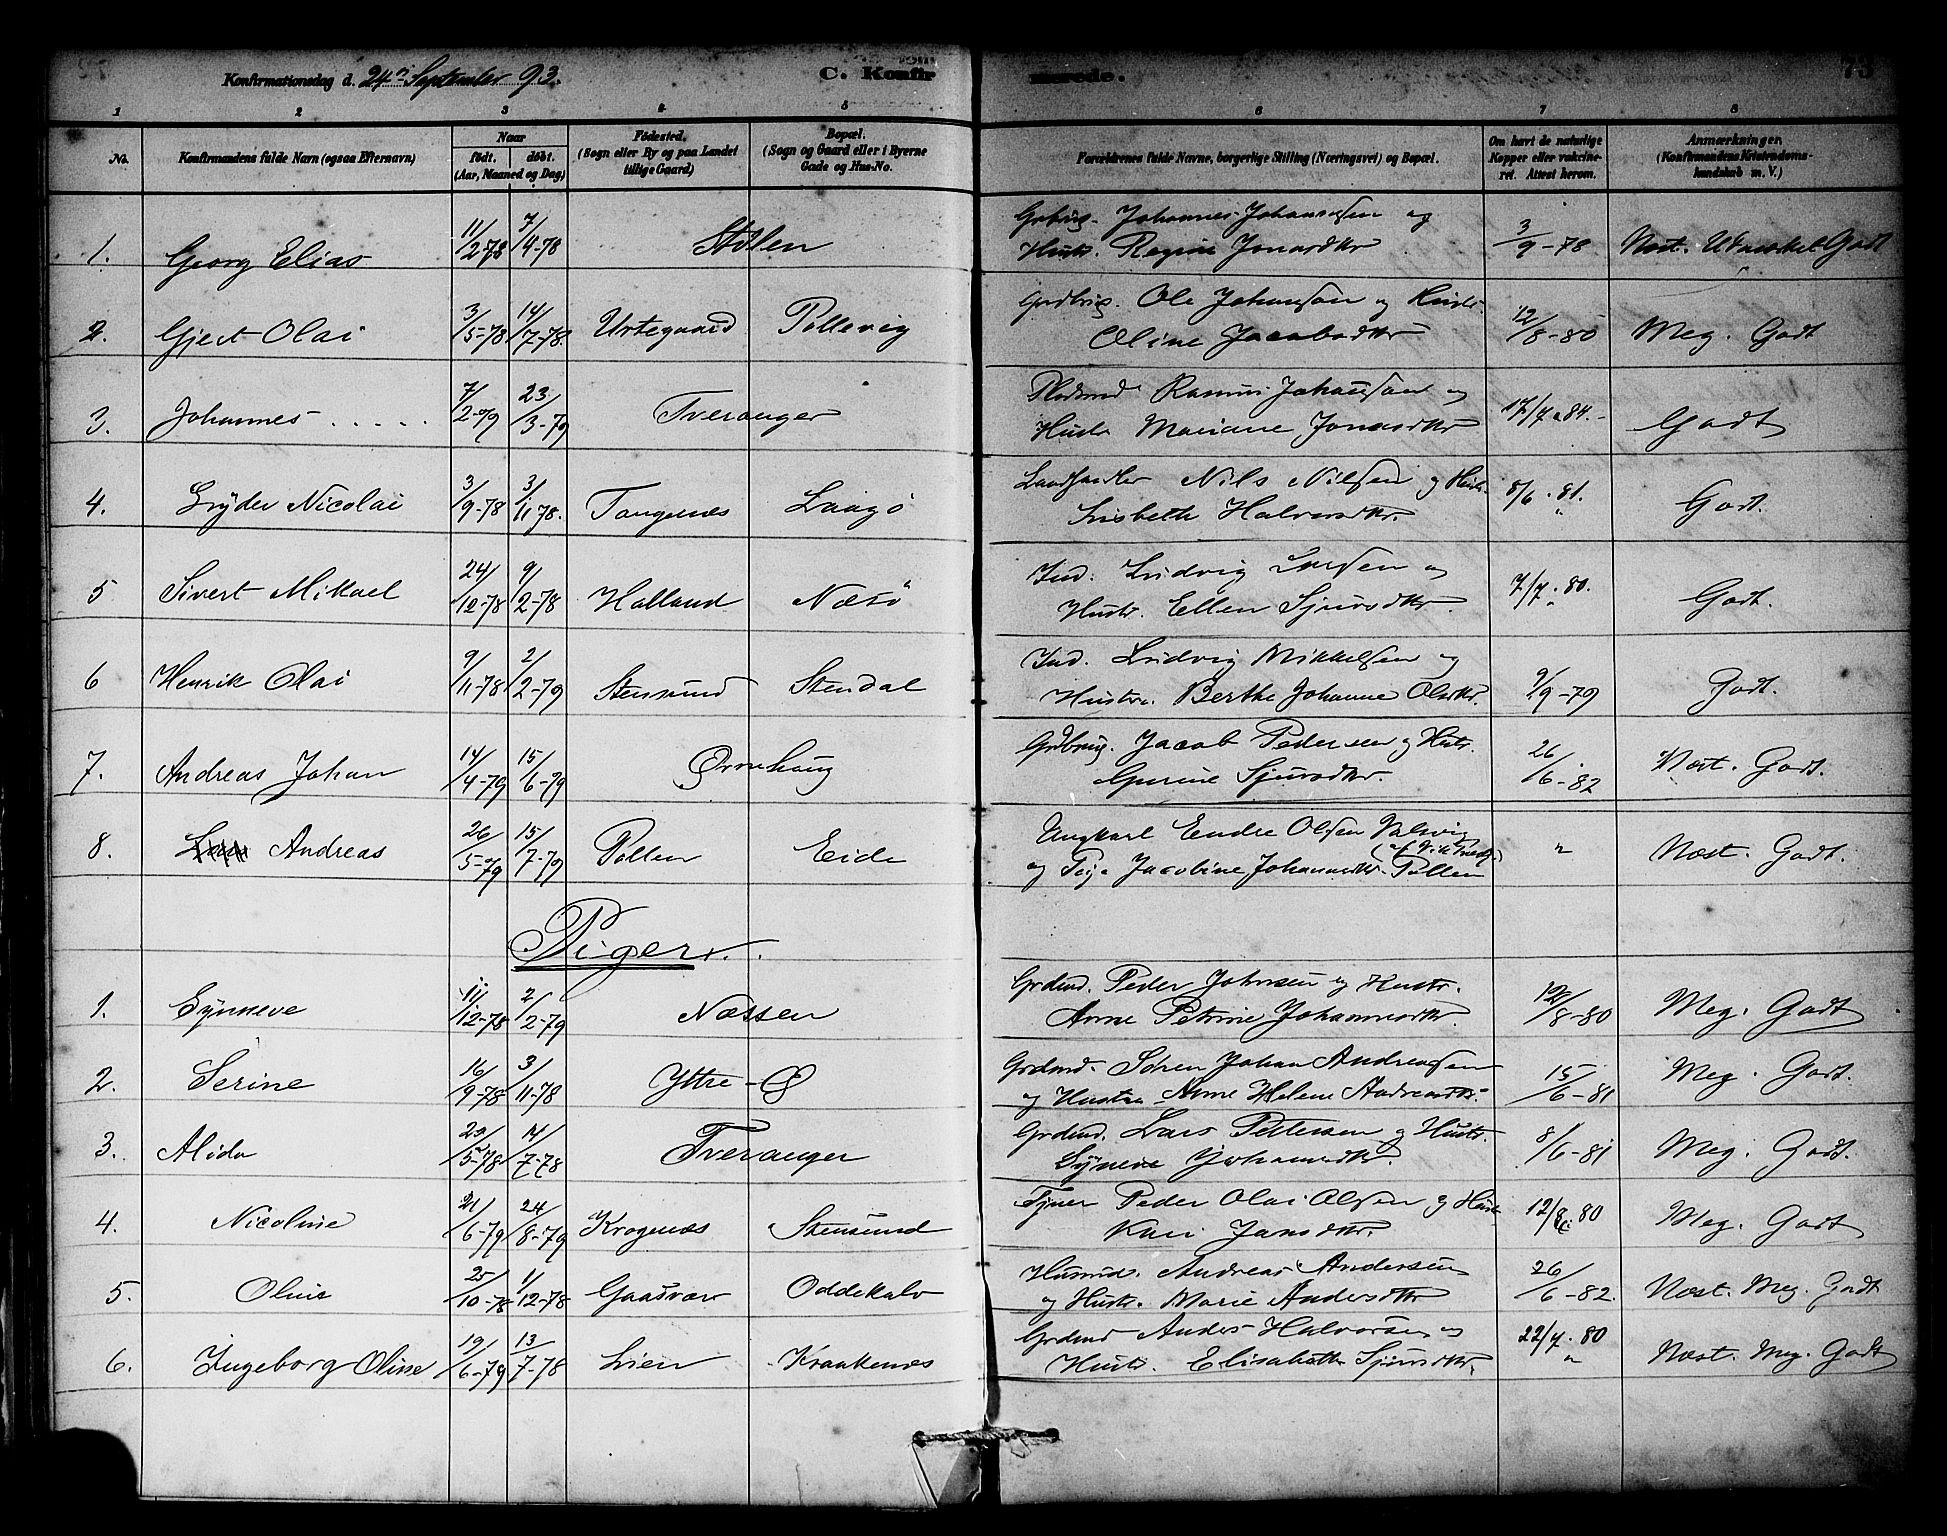 Konfirmationsdag d. 24de September 93. C. Konfirmerede. 73
1 2 3 4 5 6 7 8
No. Konfirmandens fulde Navn (ogsaa Efternavn) Naar født. døbt. (Aar, Maaned og Dag) Fødested. (Sogn eller By og paa Landet tillige Gaard) Bopæl. (Sogn og Gaard eller i Byerne Gade og Hus-No. Forældrenes fulde Navne, borgerlige Stilling (Næringsvei) og Bopæl. Om havt de naturlige Kopper eller vakcineret. Attest herom. Anmærkninger. (Konfirmandens Kristendomskundskab m. V.)
1. Georg Elias 11/2-78 7/4-78 Stölen Grbrug. Johannes Johannessen og Hustr. Regine Jonasdtr 3/9-78 Næst. Udmærket Godt
2. Gjert Olai 3/5-78 14/7-78. Urtegaard Pollevig Grdbrug. Ole Johansen og Hustr. Oline Jacobsdtr 12/8-80 Meg. Godt
3. Johannes ..... 7/2-79 23/3-79 Tveranger Rasmus Johansen og Hustr Mariane Jonasdtr 17/7-84.- Godt
4. Lyder Nicolai 3/9-78 3/11-78. Tangenæs Laagö Landhandler Nils Nilsen og Hustr. Lisbeth Halvorsdtr. 8/6.81. Godt.
5 Sivert Mikael 24/12-78 9/2-78 Halland Næsö Ind. Ludvig Larsen og Hustr. Ellen Sjursdtr. 7/7.80. Godt.
6 Henrik Olai 9/11-78 2/2-79 Stensund Stendal Ind. Ludvig Mikkelsen og Hustru. Berthe Johanne Olsdtr. 9/9-79 Godt.
7. Andreas Johan 14/4-79 15/6-79 Ørnehaug Grdbrug. Jacob Pedersen og Hustr. Gurine Sjursdtr. 26/6-82 Næst. Godt.
8. Andreas 26/5-79 15/7-79 Pollen Eide Ungkarl Endre Olsen og Pige Jacobine Johannesdtr. Pollen " Næst. Godt.
Piger.
1. Synneve 11/12-78 2/2-79 Næssen Grdmd. Peder Johnsen og Hustr. Anne Petrine Johannesdtr. 12/8-80 Meg. Godt
2. Serine 16/9-78 3/11-78 Yttre-Ø Grdmd. Sören Johan Andreassen og Hustru Anne Helene Andreasdtr. 15/6-81 Meg. Godt.
3. Alida 23/5-78 14/7-78 Tveranger Grdmd. Lars Pettersen og Hustr. Syneve Johannesdtr. 8/6-81 Meg. Godt.
4. Nicoline 21/6-79 24/8-79 Krogenæs Stensund Peder Olai Olsen og Hustr Kari Jansdtr. 12/8.80 Meg. Godt
5. Oline 25/10-78 1/12-78 Gaasvær Oddekalv Husmd. Andreas Andersen og Hustr. Marie Andersdtr 26/6-82. Næst. Meg. Godt
6. Ingeborg Oline 19/6-79 13/7-78 Lien Kraakenæs Grdmd Anders Halvorsen og Hustr. Elisabeth Sjursdtr. 22/7.80 " Næst. Meg. Godt